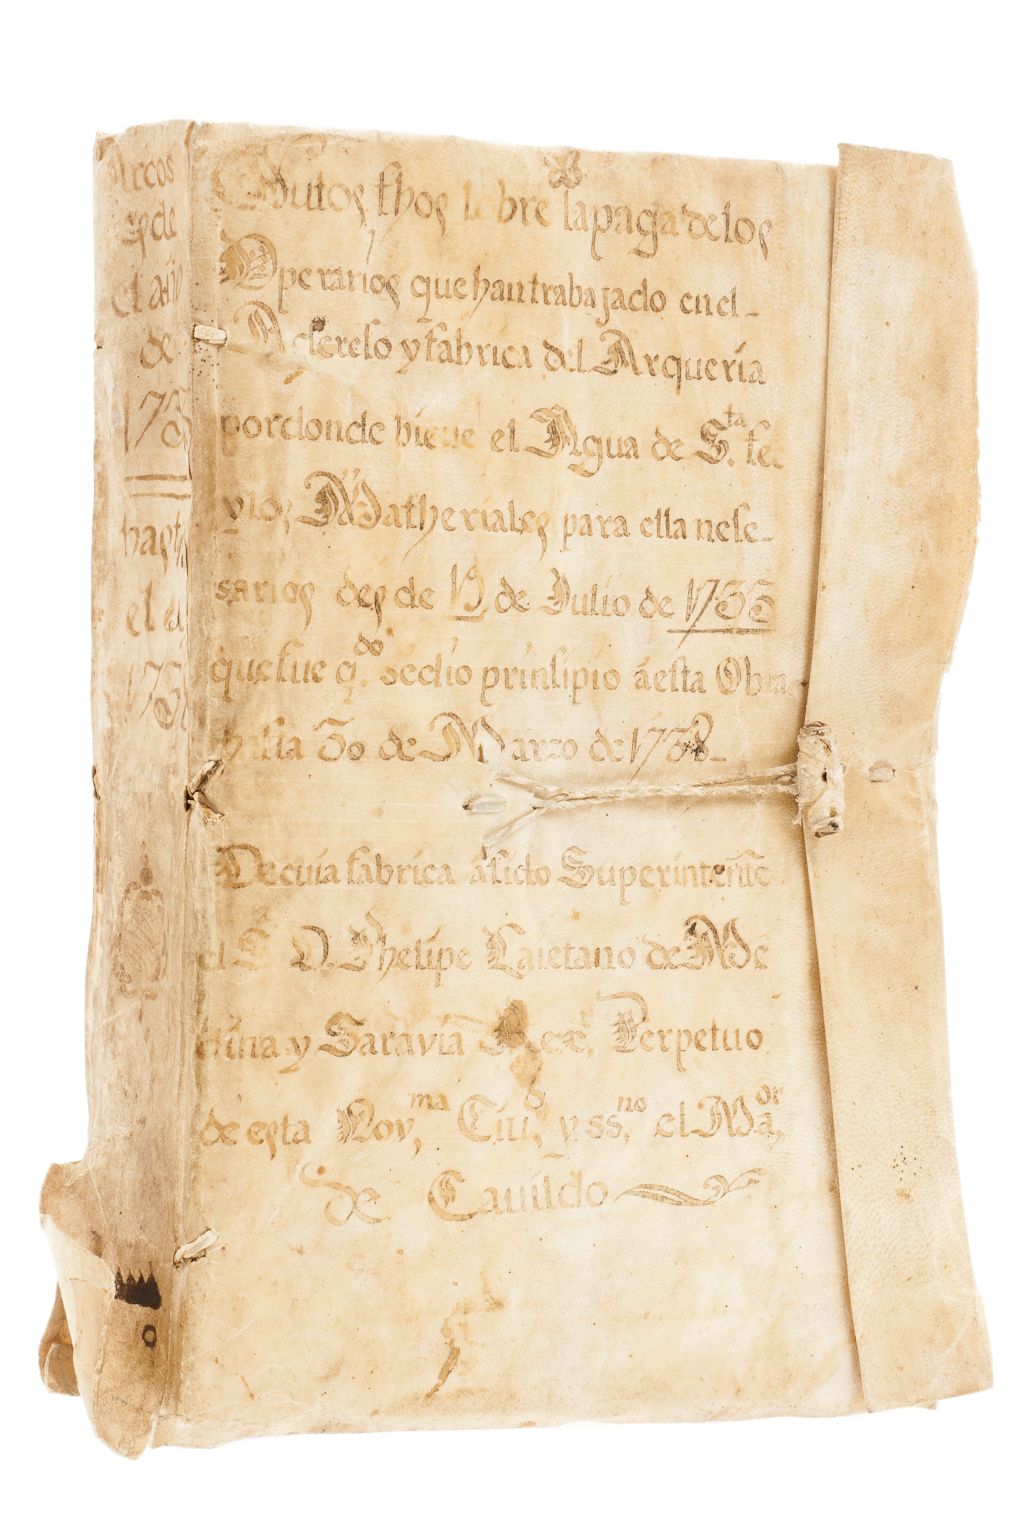 Arcos
desde
el año
de
173
hasta
el a
173
Autos fhos sobre lapaga delos
Operarios que han trabajado en el
Adereso y fabrica del Arqueria
por donde biene el Agua de S.ta fee
y los Matheriales para ella nese-
sarios desde 12 de Julio de 1735
que fue q.do se dio prinsipio â esta Obra
hasta 30 de Marzo de 1738
De cuia fabrica â sido Superintente
el S.r D. Phelipe Caietano de Me
dina y Saravia Rex.r Perpetuo
de esta Nov.ma Ciu.d y ss.no el Ma.or
de Cavildo